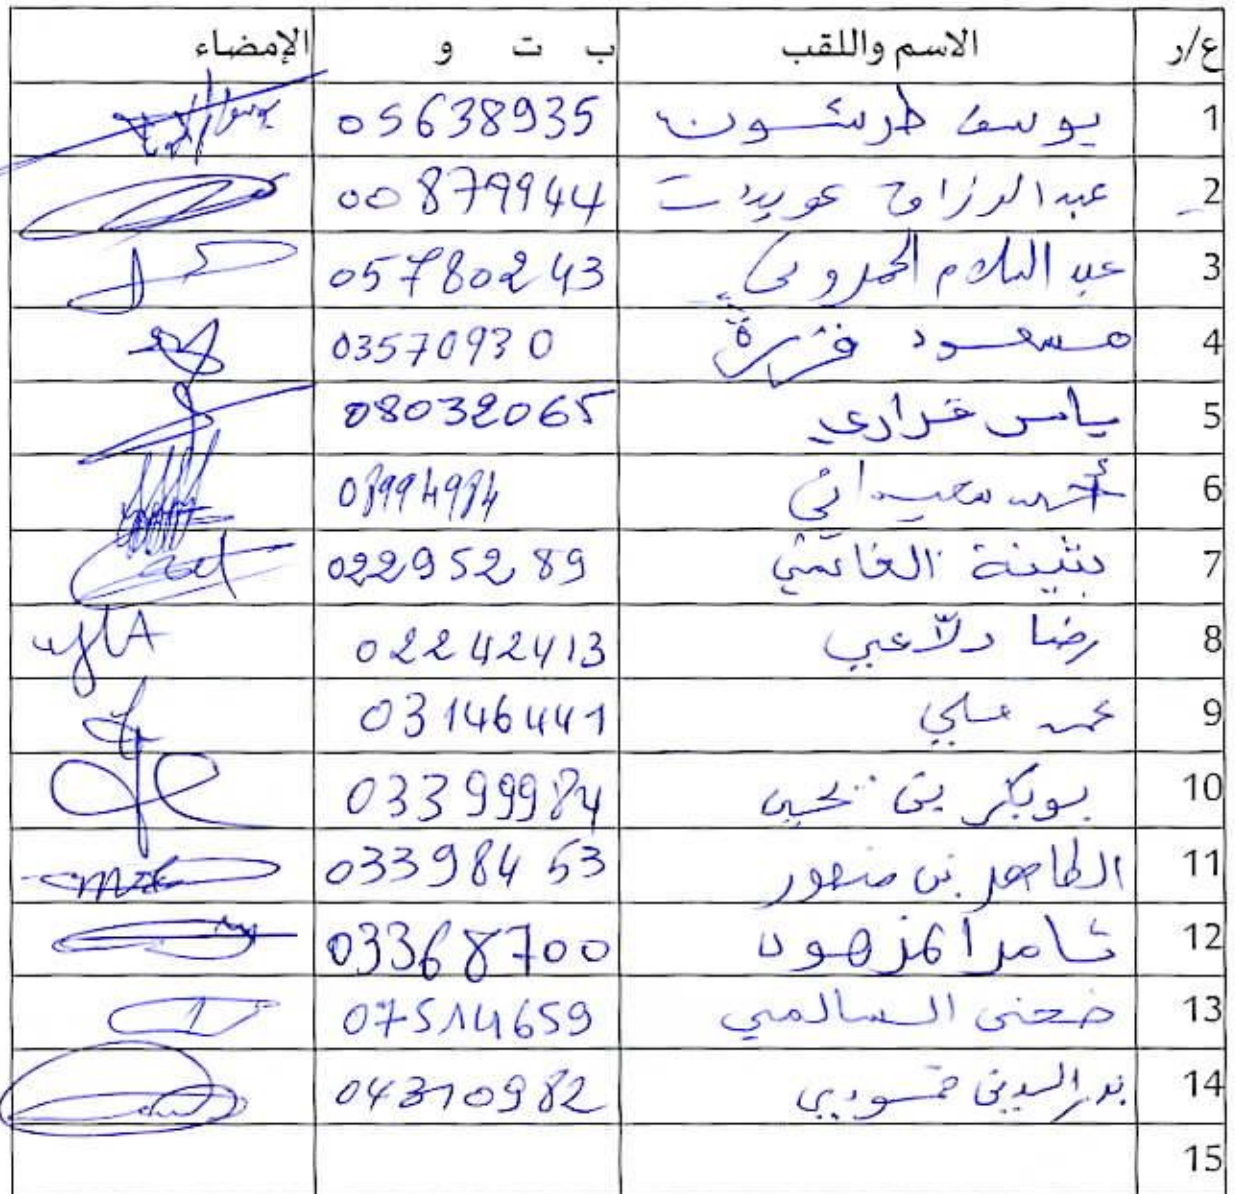 ع/ر الاسم واللقب ب ت و الإمضاء
1 يوسف طرشون 05638935
2 عبد الرزاق عويدات 00879944
3 عبد السلام الحمروني 05780243
4 مسعود 03570930
5 ياسر قراري 08032065
6 أحمد سعيداني 08994984
7 بثينة الغانمي 02295289
8 رضا دلاعي 02242413
9 علي 03146441
10 بوبكر بن يحيى 03399984
11 الطاهر بن منصور 03398453
12 ثامر المزهود 03368700
13 ضحى السالمي 07514659
14 بدر الدين قمودي 04310982
15